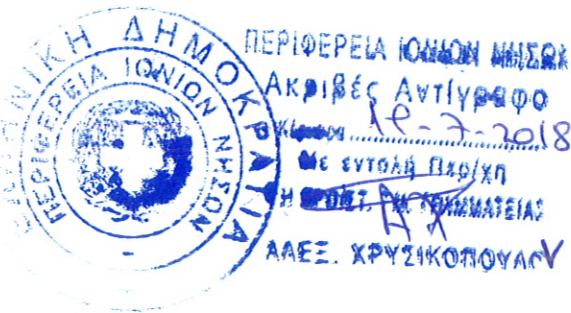 ΕΛΛΗΝΙΚΗ ΔΗΜΟΚΡΑΤΙΑ
ΠΕΡΙΦΕΡΕΙΑ ΙΟΝΙΩΝ ΝΗΣΩΝ
ΠΕΡΙΦΕΡΕΙΑ ΙΟΝΙΩΝ ΝΗΣΩΝ
Ακριβές Αντίγραφο
-7-2018
Με εντολή Περ/χη
Η ΓΡΑΜΜΑΤΕΙΑΣ
ΑΛΕΞ. ΧΡΥΣΙΚΟΠΟΥΛΟΥ